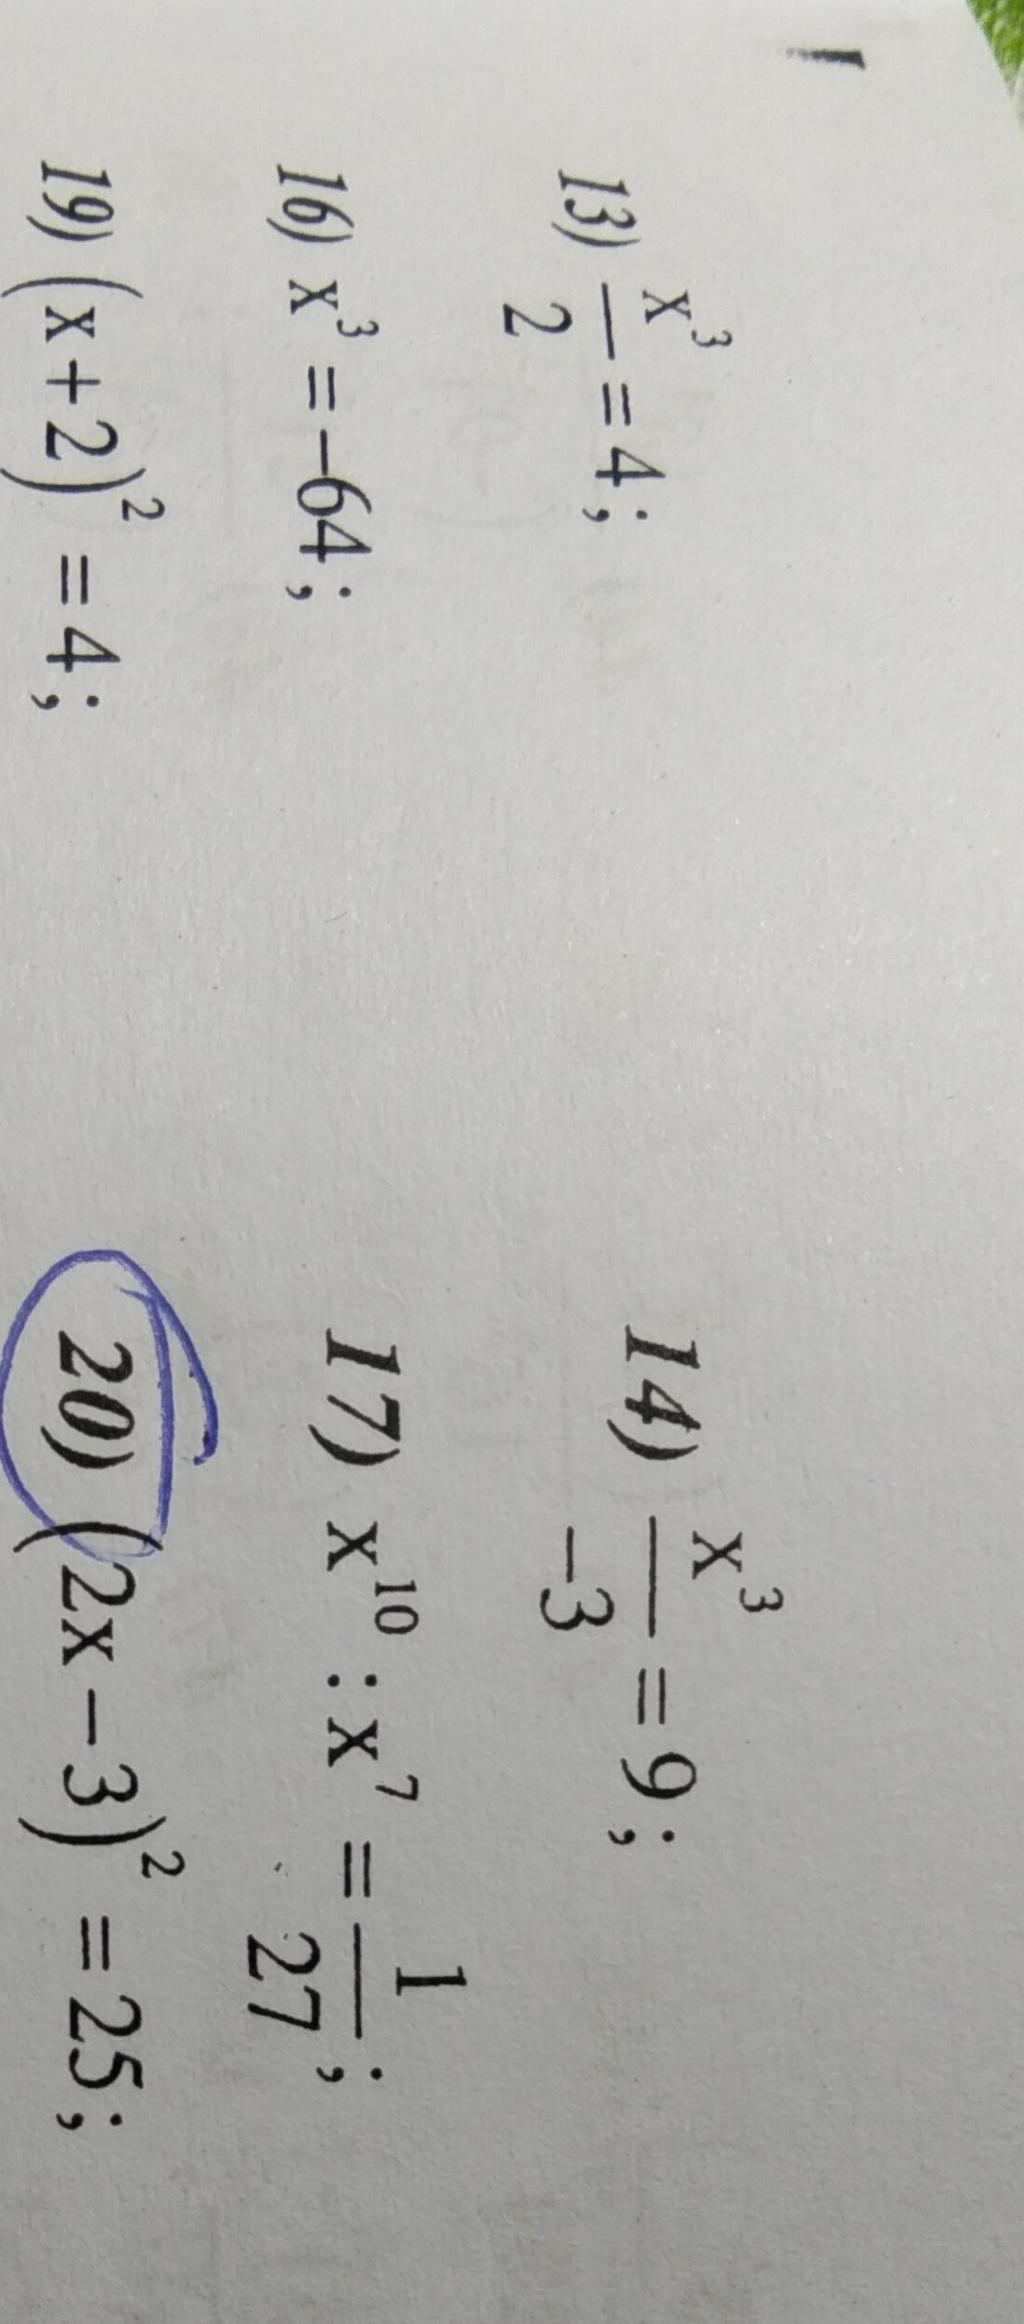 13) x³/2 = 4; 14) x³/-3 = 9;
16) x³ = -64; 17) x¹⁰ : x⁷ = 1/27;
19) (x + 2)² = 4; 20) (2x - 3)² = 25;